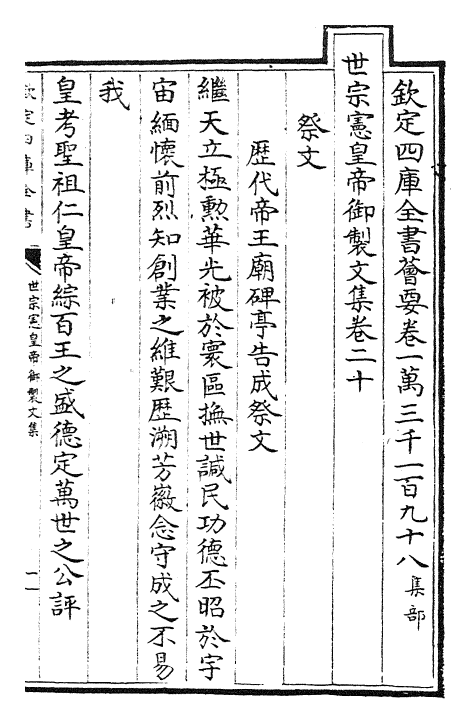 欽定四庫全書薈要卷一萬三千一百九十八集部
世宗憲皇帝御製文集卷二十
祭文
歴代帝王廟碑亭告成祭文
繼天立極勲華光被於寰區撫世諴民功德丕昭於宇
宙緬懷前烈知創業之維艱歴溯芳徽念守成之不易
我
皇考聖祖仁皇帝綜百王之盛德定萬世之公評
欽定四庫全書
世宗憲皇帝御製文集
一